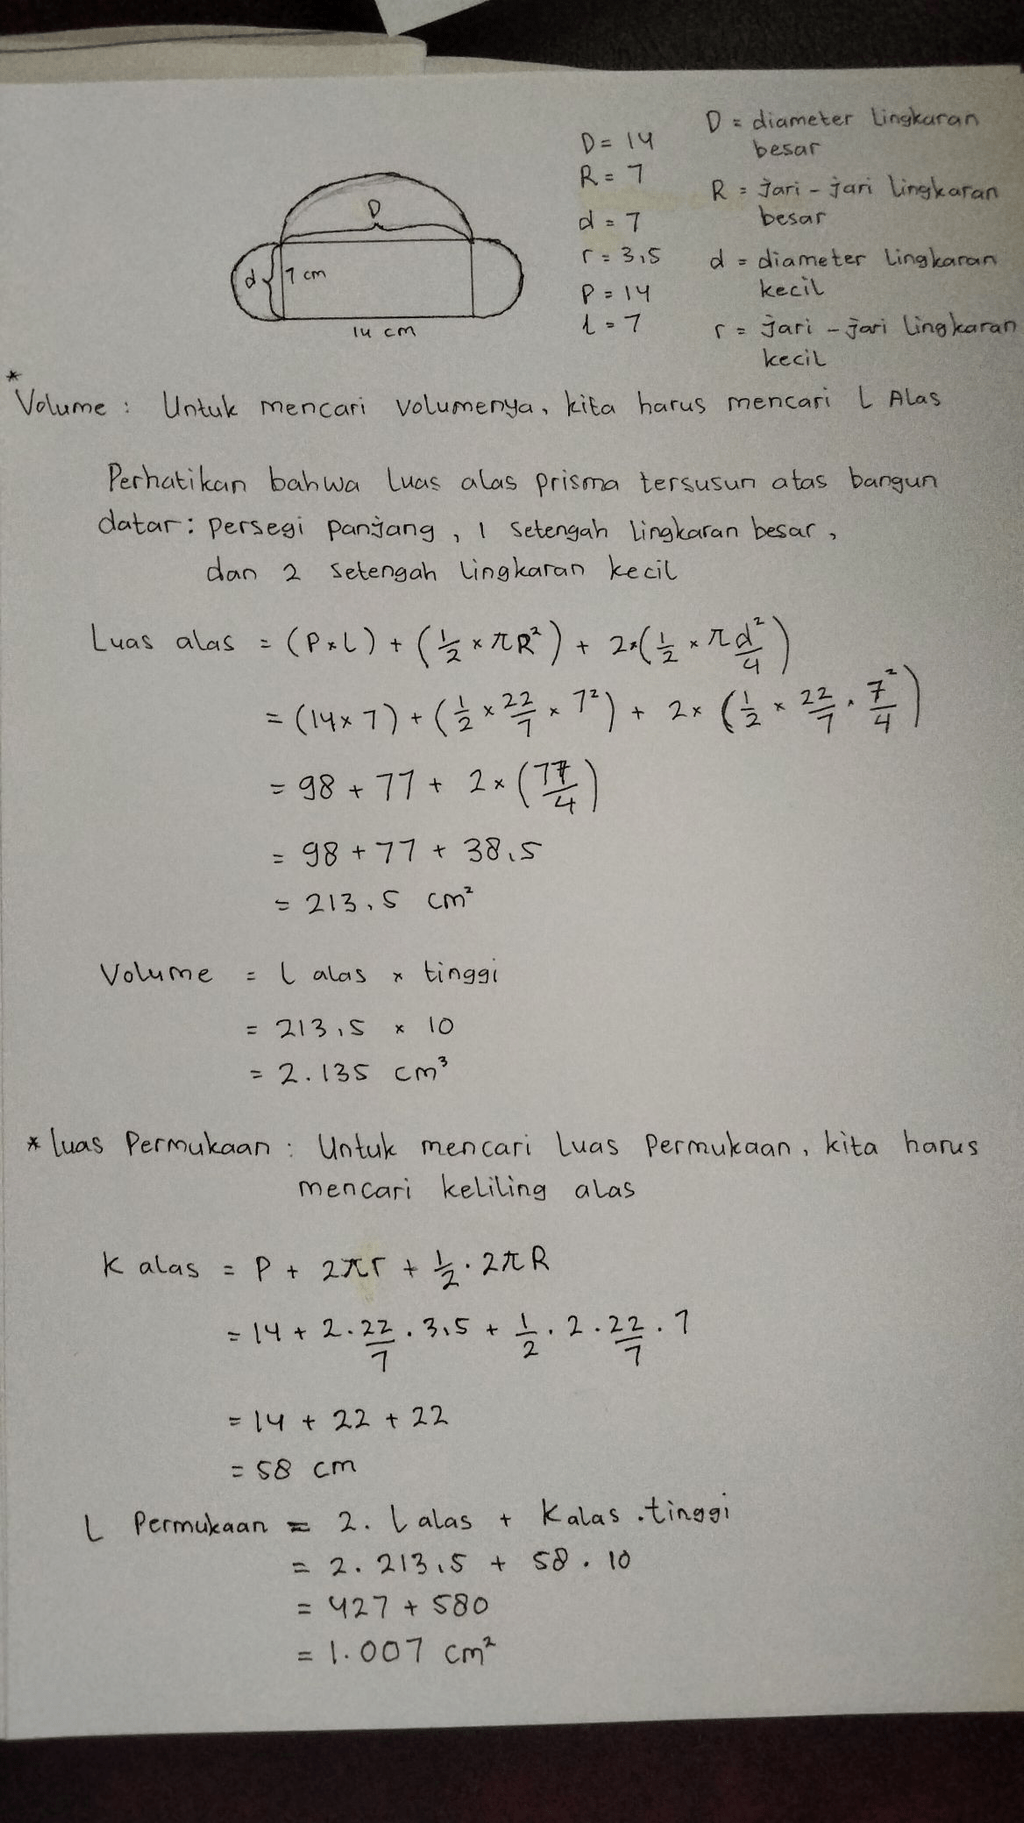 D = 14
R = 7
d = 7
r = 3,5
P = 14
l = 7
D = diameter lingkaran
besar
R = Jari - jari lingkaran
besar
d = diameter lingkaran
kecil
r = jari - jari lingkaran
kecil
D
d 7 cm
14 cm
* Volume : Untuk mencari volumenya, kita harus mencari L Alas
Perhatikan bahwa luas alas prisma tersusun atas bangun
datar : persegi panjang, 1 setengah lingkaran besar,
dan 2 setengah lingkaran kecil
Luas alas = (P × L) + (1/2 × πR²) + 2×(1/2 × πd²/4)
= (14 × 7) + (1/2 × 22/7 × 7²) + 2 × (1/2 × 22/7 · 7²/4)
= 98 + 77 + 2 × (77/4)
= 98 + 77 + 38,5
= 213,5 cm²
Volume = L alas × tinggi
= 213,5 × 10
= 2.135 cm³
* Luas Permukaan : Untuk mencari Luas Permukaan, kita harus
mencari keliling alas
K alas = P + 2πr + 1/2 · 2πR
= 14 + 2 · 22/7 · 3,5 + 1/2 · 2 · 22/7 · 7
= 14 + 22 + 22
= 58 cm
L Permukaan = 2. L alas + K alas . tinggi
= 2. 213,5 + 58 . 10
= 427 + 580
= 1.007 cm²